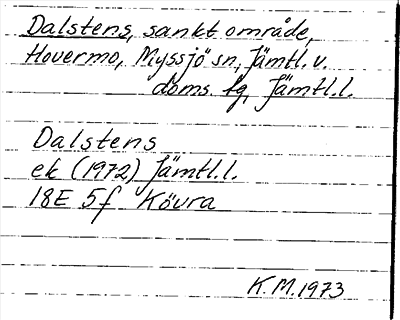 Dalstens, sankt område,
Hovermo, Myssjö sn, Jämtl. v.
doms. fg, Jämtl. l.
Dalstens
ek (1972) Jämtl. l.
18E 5f Kövra
K.M. 1973